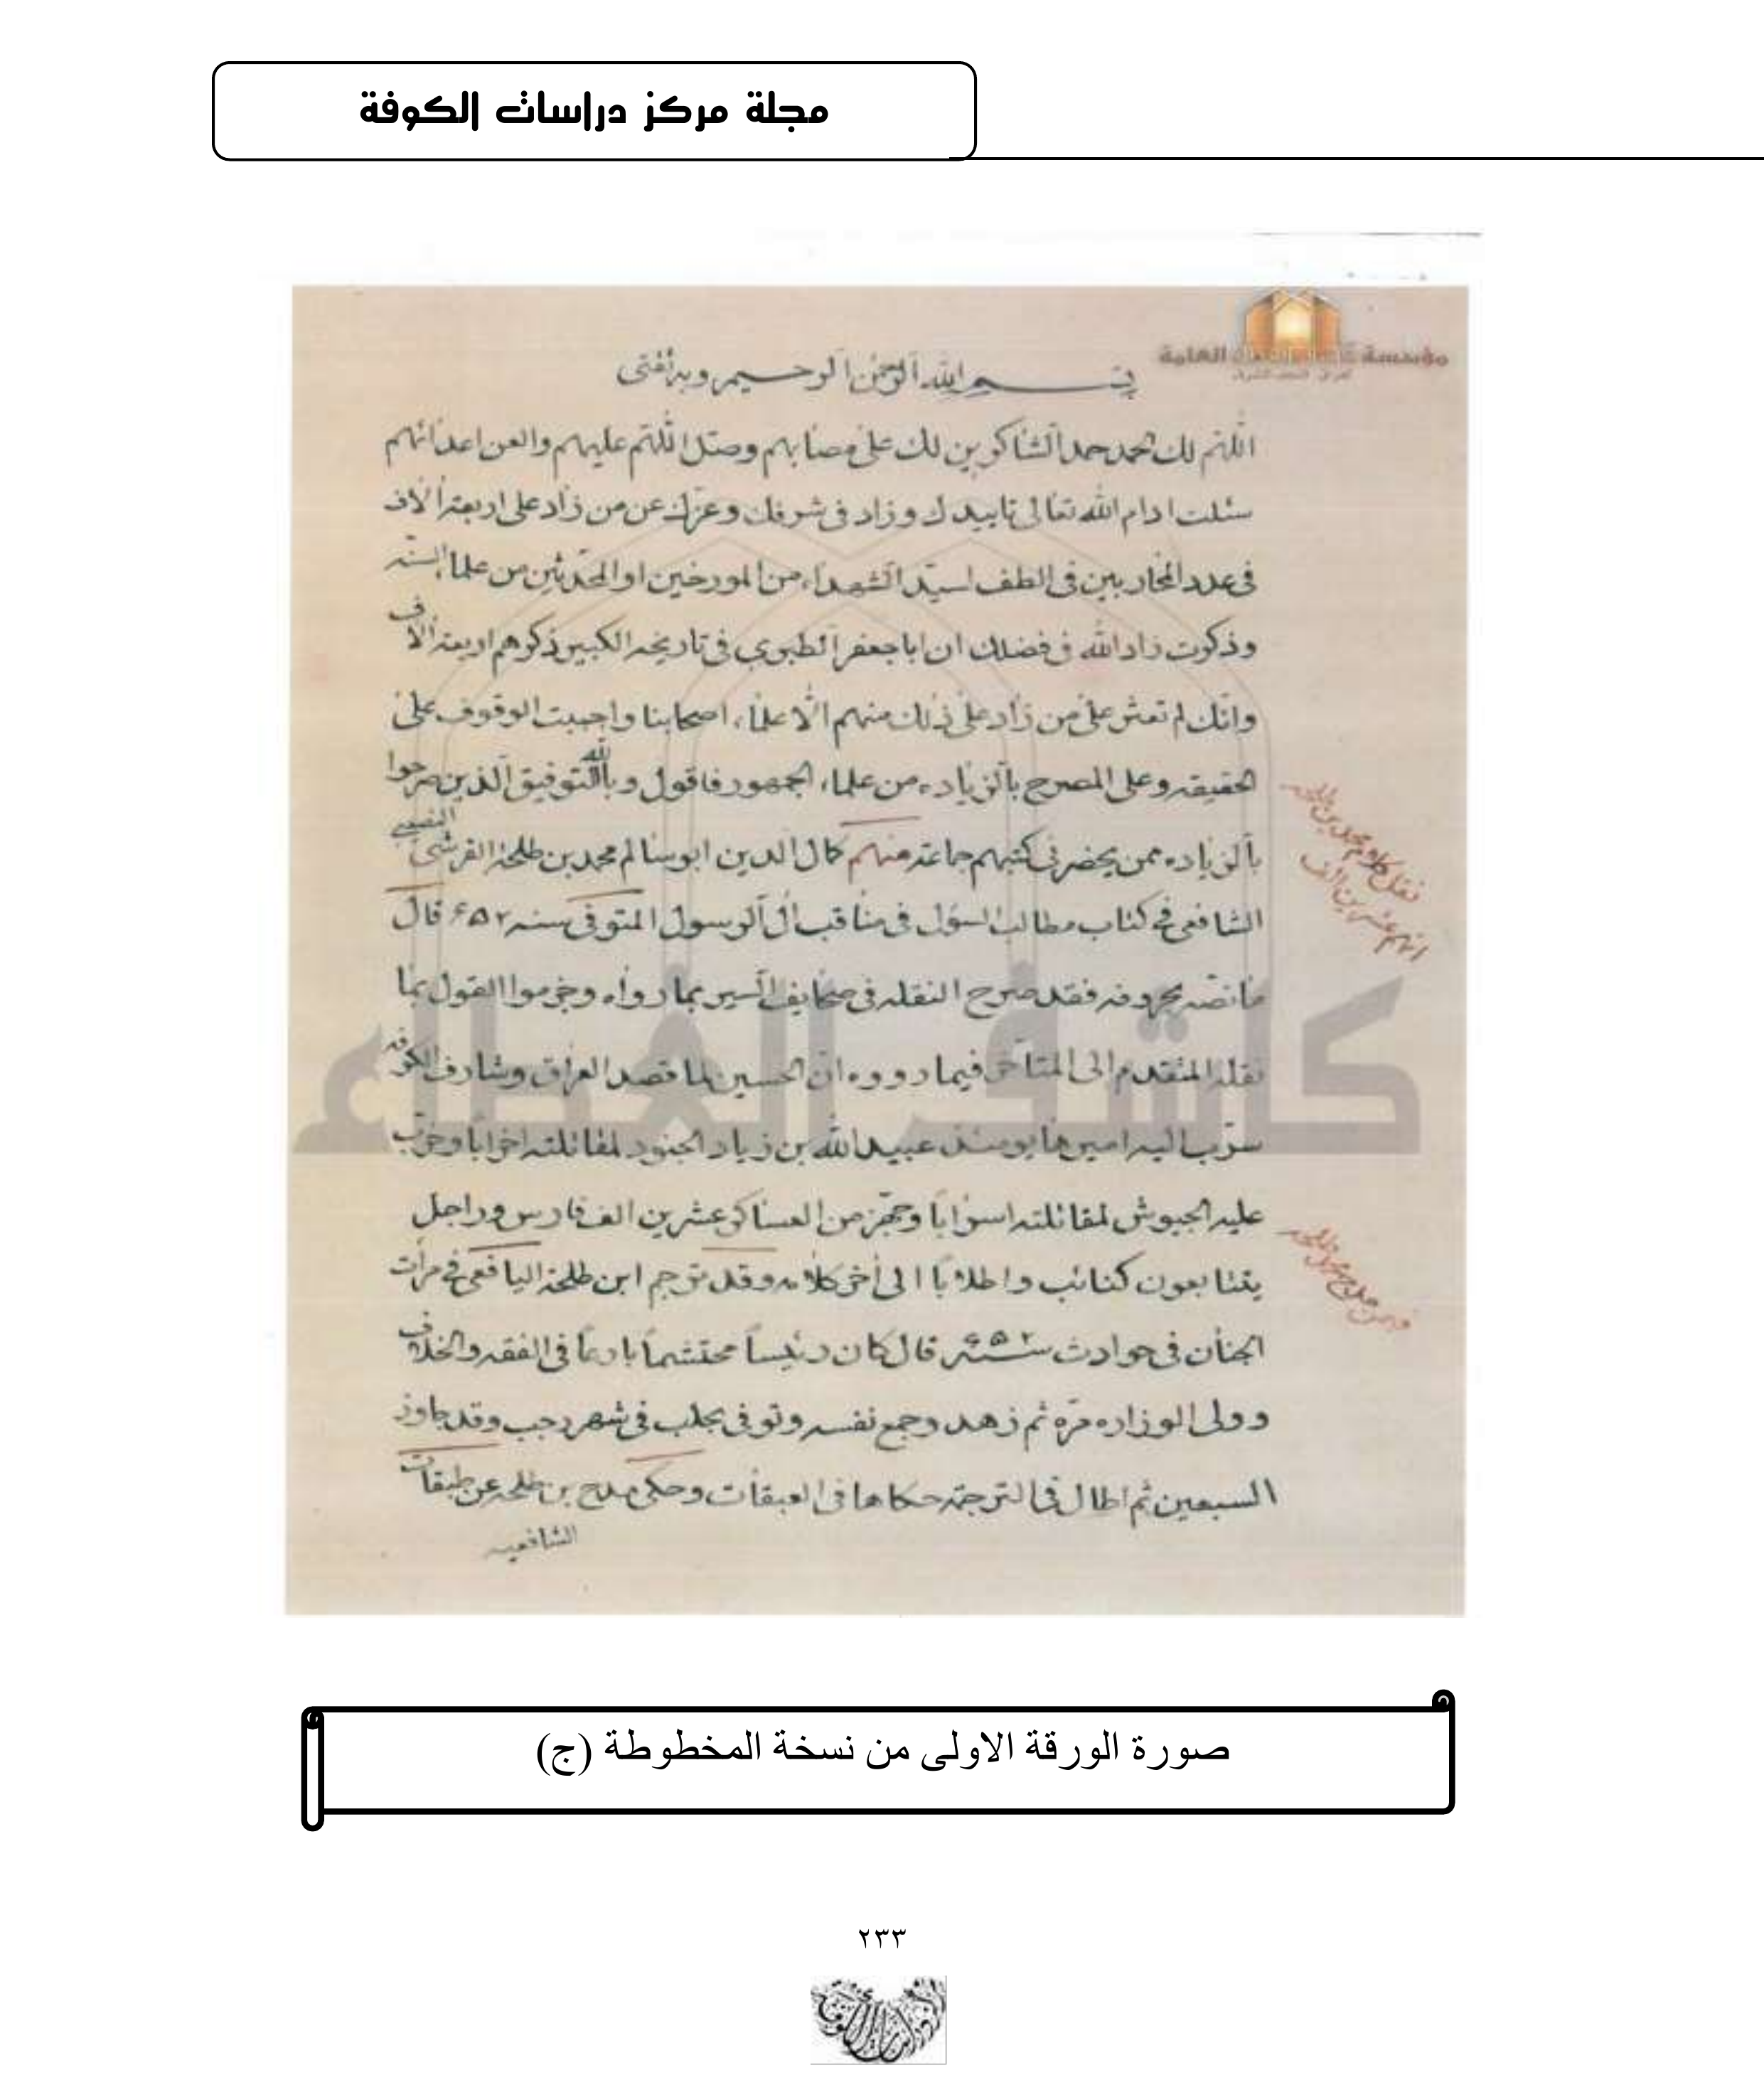 مجلة مركز دراسات الكوفة
مؤسسة كاشف الغطاء العامة
بسم الله الرحمن الرحيم وبه ثقتي
اللهم لك الحمد حمد الشاكرين لك على مصابهم وصل اللهم عليهم والعن اعدائهم
سئلت ادام الله تعالى تاييدك وزاد في شرفك وعزك عن من زاد على اربعة الاف
في عدد المحاربين في الطف لسيد الشهداء من المورخين او المحدثين من علماء السنه
وذكرت زاد الله في فضلك ان ابا جعفر الطبري في تاريخه الكبير ذكرهم اربعة الاف
وانك لم تعثر على من زاد على ذلك منهم الا علماء اصحابنا واحببت الوقوف على
الحقيقه وعلى المصرح بالزياده من علماء الجمهور فاقول وبالله التوفيق الذين صرحوا
بالزياده ممن يحضرني كتبهم جماعة منهم كمال الدين ابو سالم محمد بن طلحة القرشي النصيبي
الشافعي في كتاب مطالب السؤل في مناقب آل الرسول المتوفى سنه ۶۵۲ قال
ما نصه بحروفه فقد صرح النقله في صحايف السير بما رواه وجزموا القول بما
نقله المتقدم الى المتأخر فيما رووه ان الحسين لما قصد العراق وشارف الكوفه
سرب اليه اميرها يومئذ عبيد الله بن زياد الجنود لمقاتلته احزابا وحزب
عليه الجيوش لمقاتلته اسرابا وجهز من العساكر عشرين الف فارس وراجل
يتتابعون كتائب واطلابا الى أخر كلامه وقد ترجم ابن طلحة اليافعي في مرات
الجنان في حوادث سنة ۶۵۲ قال كان رئيسا محتشما بارعا في الفقه والخلاف
وولى الوزاره مره ثم زهد وجمع نفسه وتوفى بحلب في شهر رجب وقد جاوز
السبعين ثم اطال في الترجمة حكاها في العبقات وحكى مدح بن طلحه عن طبقات
الشافعيه
نقل كلام محمد بن طلحه
انهم عشرين الف
كاشف الغطاء
صورة الورقة الاولى من نسخة المخطوطة (ج)
٢٣٣